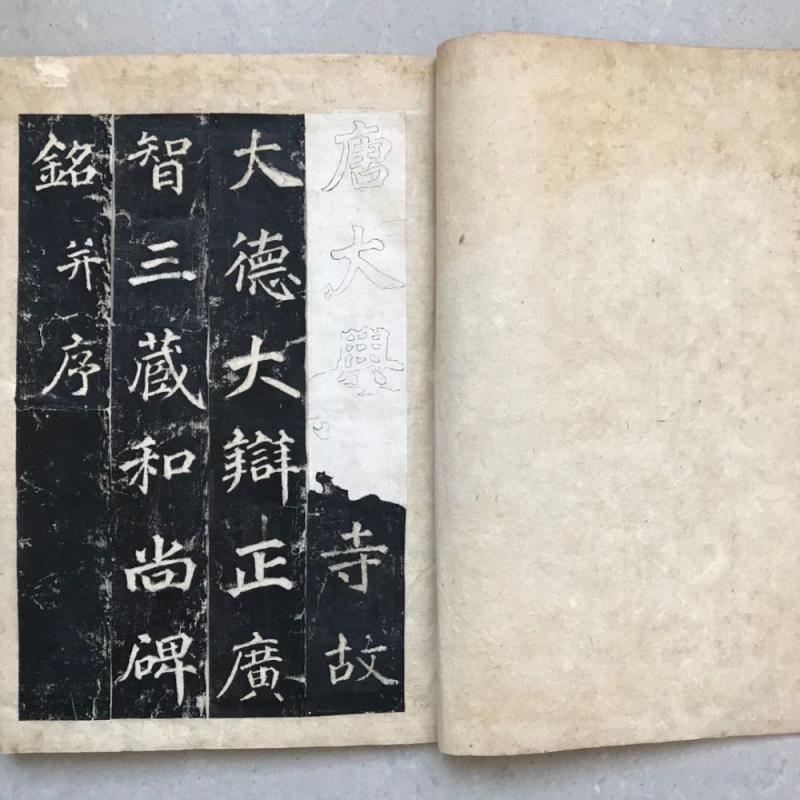 唐大興寺故
大德大辯正廣
智三蔵和尚碑
銘并序